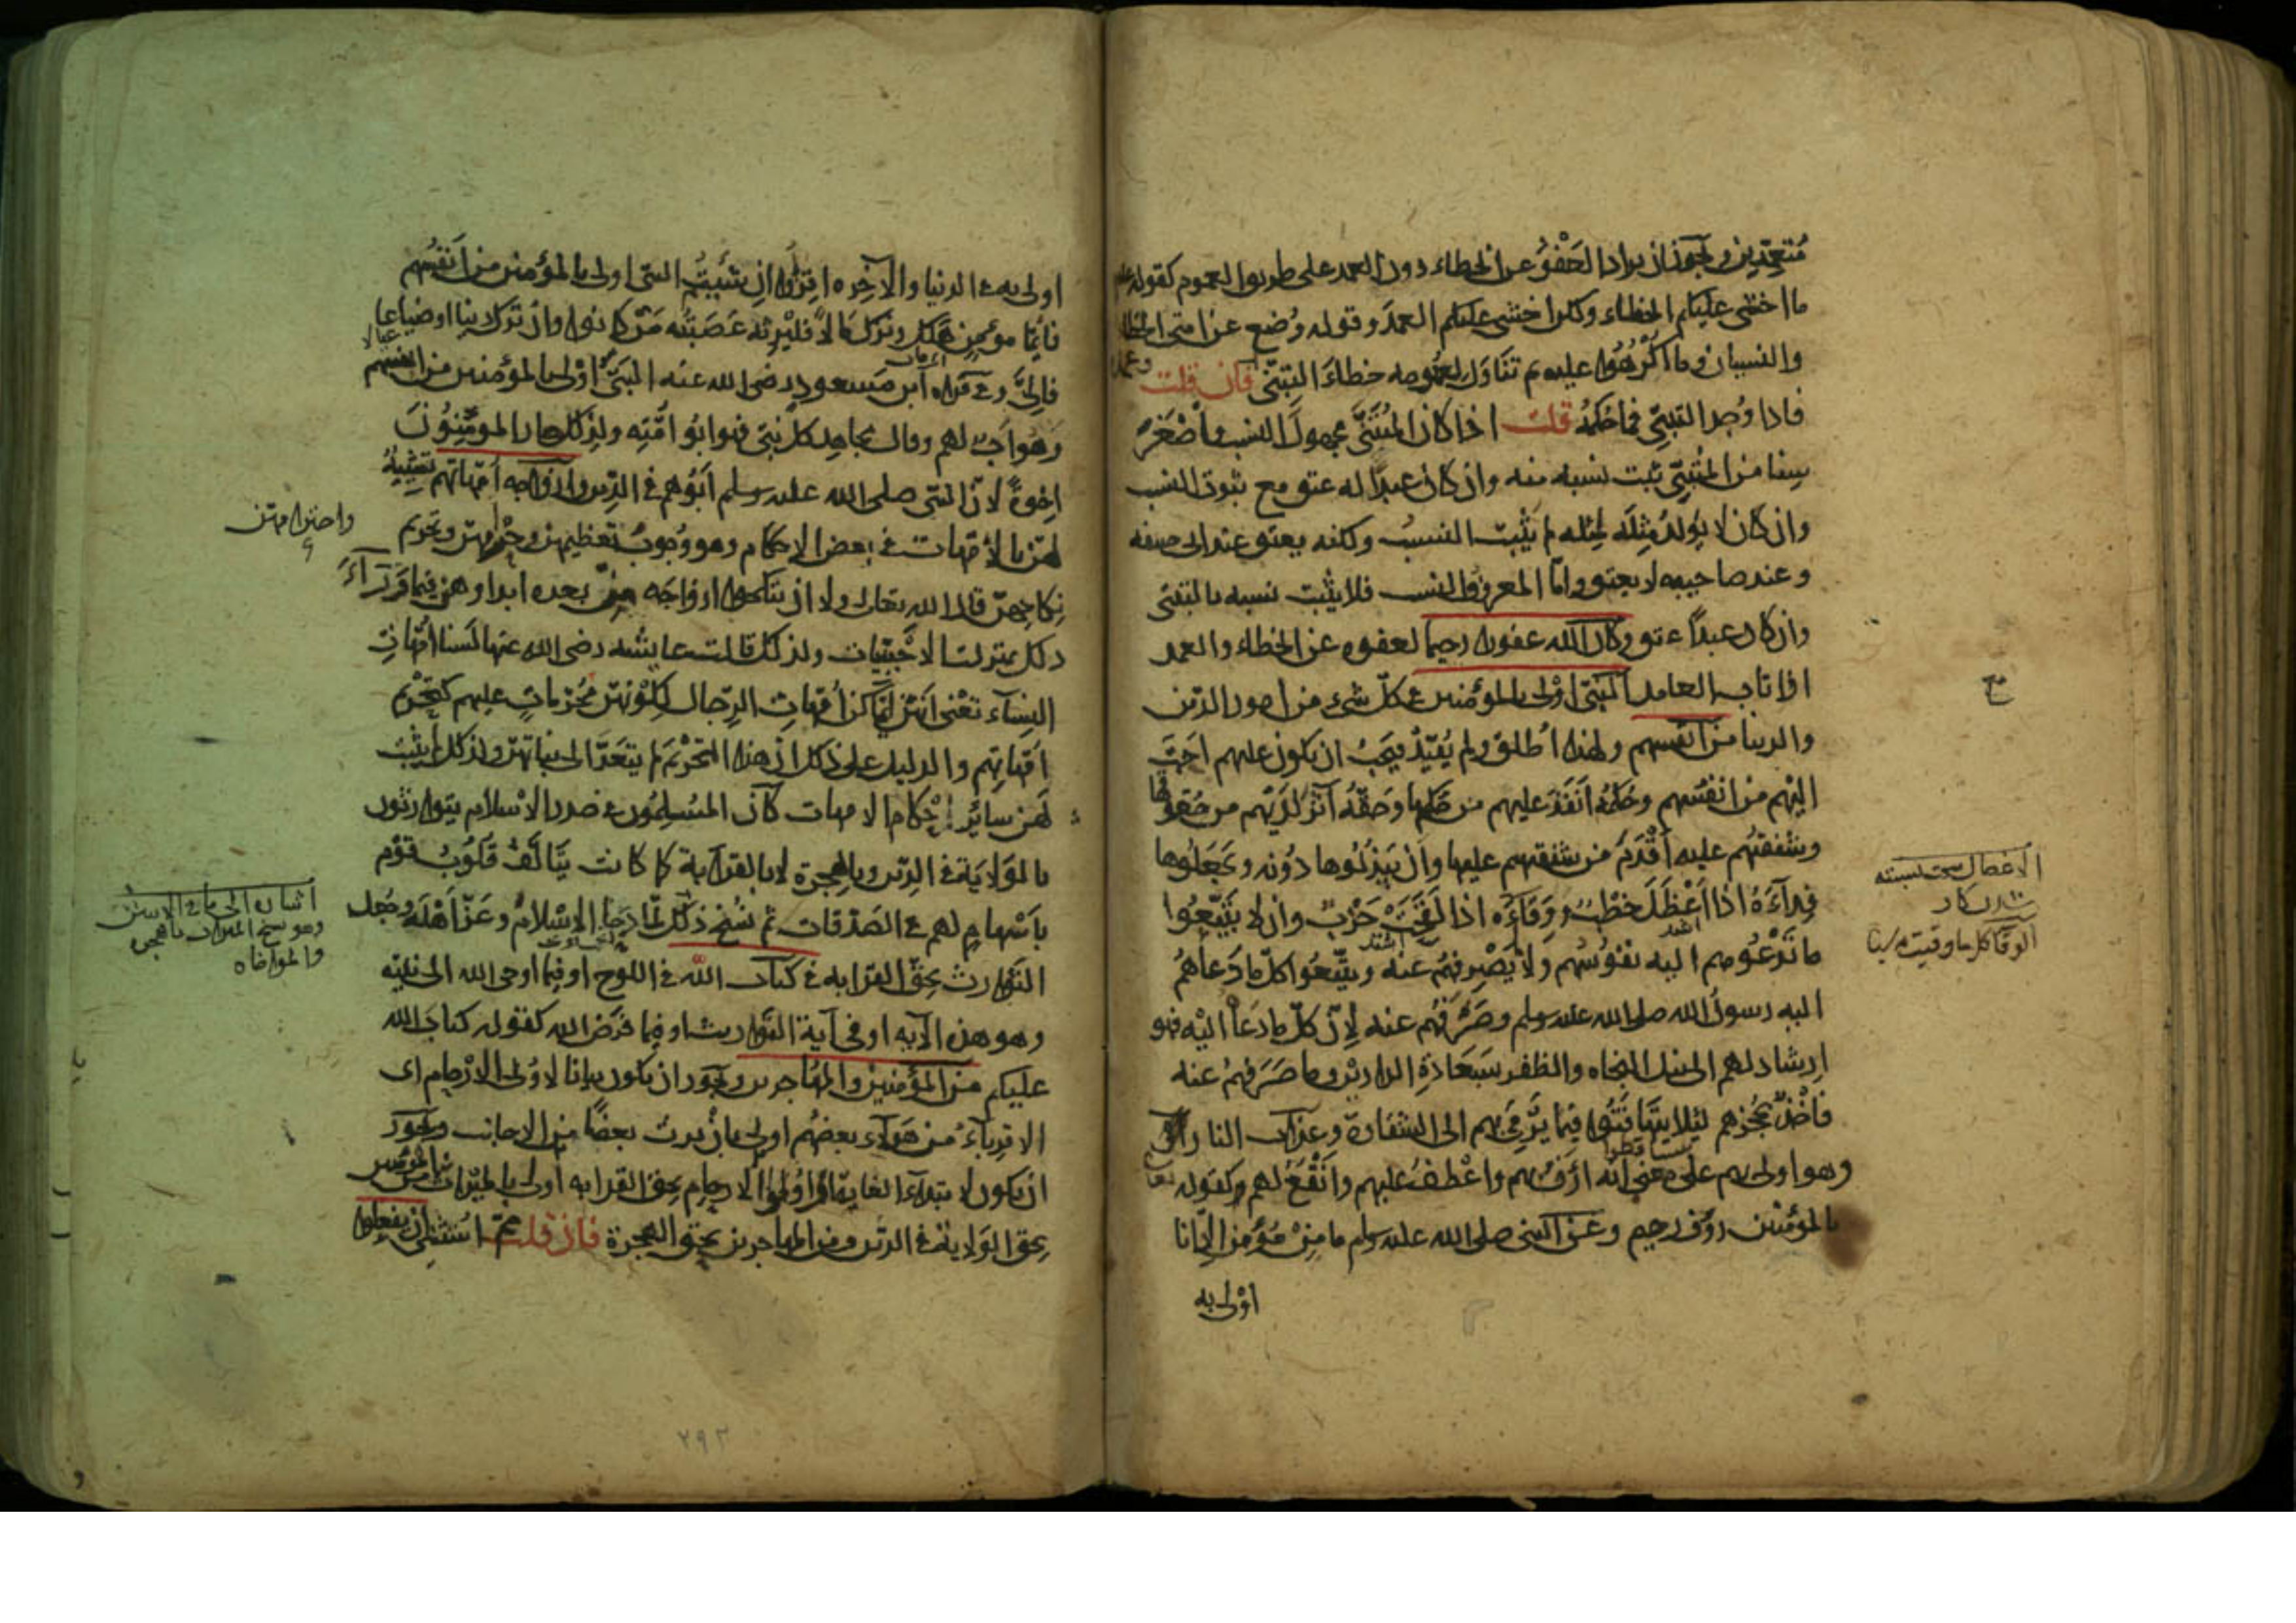 متعمدين ويجوز ان يراد العفو عن الخطاء دون العمد على طريق العموم كقوله عم
ما اخشى عليكم الخطاء ولكن اخشى عليكم العمد وقوله وضع عن امتى الخطا
والنسيان وما اكرهوا عليه ثم تناول لعمومه خطاء التبنى وعمده فان قلت
فاذا وجد التبنى فما حكمه قلت اذا كان المتبنى مجهول النسب واصغر
سنا من المتبنى ثبت نسبه منه وان كان عبدا له عتق مع ثبوت النسب
وان كان لا يولد مثله لمثله لم يثبت النسب ولكنه يعتق عند ابى حنيفه
وعند صاحبيه لا يعتق واما المعروف النسب فلا يثبت نسبه بالتبنى
وان كان عبدا عتق وكان الله غفورا رحيما لعفوه عن الخطاء والعمد
اذا تاب العامد النبى اولى بالمؤمنين فى كل شىء من امور الدين
والدنيا من انفسهم ولهذا اطلق ولم يقيد فيجب ان يكون عليهم احب
اليهم من انفسهم وحكمه انفذ عليهم من حكمها وحقه آثر لديهم من حقوقها
وشفقتهم عليه اقدم من شفقتهم عليها وان يبذلوها دونه ويجعلوها
فداءه اذا اعضل خطب ووقاءه اذا لقحت حرب وان لا يتبعوا
اشتد
اشتد
ما تدعوهم اليه نفوسهم ولا يصرفهم عنه ويتبعوا كل ما دعاهم
اليه رسول الله صلى الله عليه وسلم وصرفهم عنه لان كل ما دعا اليه فهو
ارشاد لهم الى نيل النجاه والظفر بسعادة الدارين وما صرفهم عنه
فاخذ بحجزهم لئلا يتهافتوا فيما يرمى بهم الى الشقاوة وعذاب النار
وهو اولى بهم على معنى انه ارؤف بهم واعطف عليهم وانفع لهم كقوله
بالمؤمنين رؤف رحيم وعن النبى صلى الله عليه وسلم ما من مؤمن الا انا
اولى به
الاعضال
الوقا كل ما وقيت به شيا
اولى به فى الدنيا والآخره اقرؤا ان شئتم النبى اولى بالمؤمنين من انفسهم
فايما مؤمن هلك وترك مالا فليرثه عصبته من كانوا وان ترك دينا او ضياعا
عيالا
فالى وفى قراه ابن مسعود رضى الله عنه النبى اولى بالمؤمنين من انفسهم
وهو اب لهم وقال مجاهد كل نبى فهو ابو امته ولذلك صار المؤمنون
اخوة لان النبى صلى الله عليه وسلم ابوهم فى الدين وازواجه امهاتهم تشبيه
لهن بالامهات فى بعض الاحكام وهو وجوب تعظيمهن واحترامهن وتحريم
واحترامهن
نكاحهن قال الله تعالى ولا ان تنكحوا ازواجه من بعده ابدا وهن فيما وراء
ذلك بمنزلت الاجنبيات ولذلك قالت عايشه رضى الله عنها لسنا امهات
النساء تعنى انهن انما كن امهات الرجال لكونهن محرمات عليهم كتحريم
امهاتهم والدليل على ذلك ان هذا التحريم لم يتعد الى بناتهن ولذلك لم يثبت
لهن سائر احكام الامهات كان المسلمون فى صدر الاسلام يتوارثون
بالولاية فى الدين وبالهجرة لا بالقرابة كما كانت يتالف قلوب قوم
باسهام لهم فى الصدقات ثم نسخ ذلك لما دجا الاسلام وعز اهله وجعل
التوارث بحق القرابه فى كتاب الله فى اللوح او فيما اوحى الله الى نبيه
وهو هذه الآيه او فى آية التوارث او فيما فرض الله كقوله كتاب الله
عليكم من المؤمنين والمهاجرين ويجوز ان يكون بيانا لاولى الارحام اى
الاقرباء من هؤلاء بعضهم اولى بان يرث بعضا من الاجانب ويجوز
ان يكون لابتداء الغاية اى اولوا الارحام بحق القرابه اولى بالميراث من المؤمنين
بحق الولاية فى الدين ومن المهاجرين بحق الهجرة فان قلت مم استثنى ان تفعلوا
اشاره الى ما فى الآيتين
وهو نسخ الميراث بالهجره
والمواخاه
٢٩٢